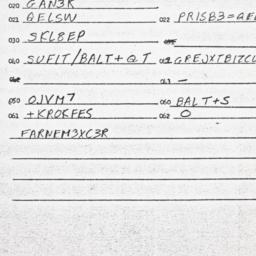 020 GAN3R
021 QELSW 022 PRISB3=QE
030 SKL8EP
040 SUFIT/BALT+QT GREJXTBITCL
—
050 OJVM7 060 BALT+S
061 +KROKFES 062 O
FARNFM3XC3R